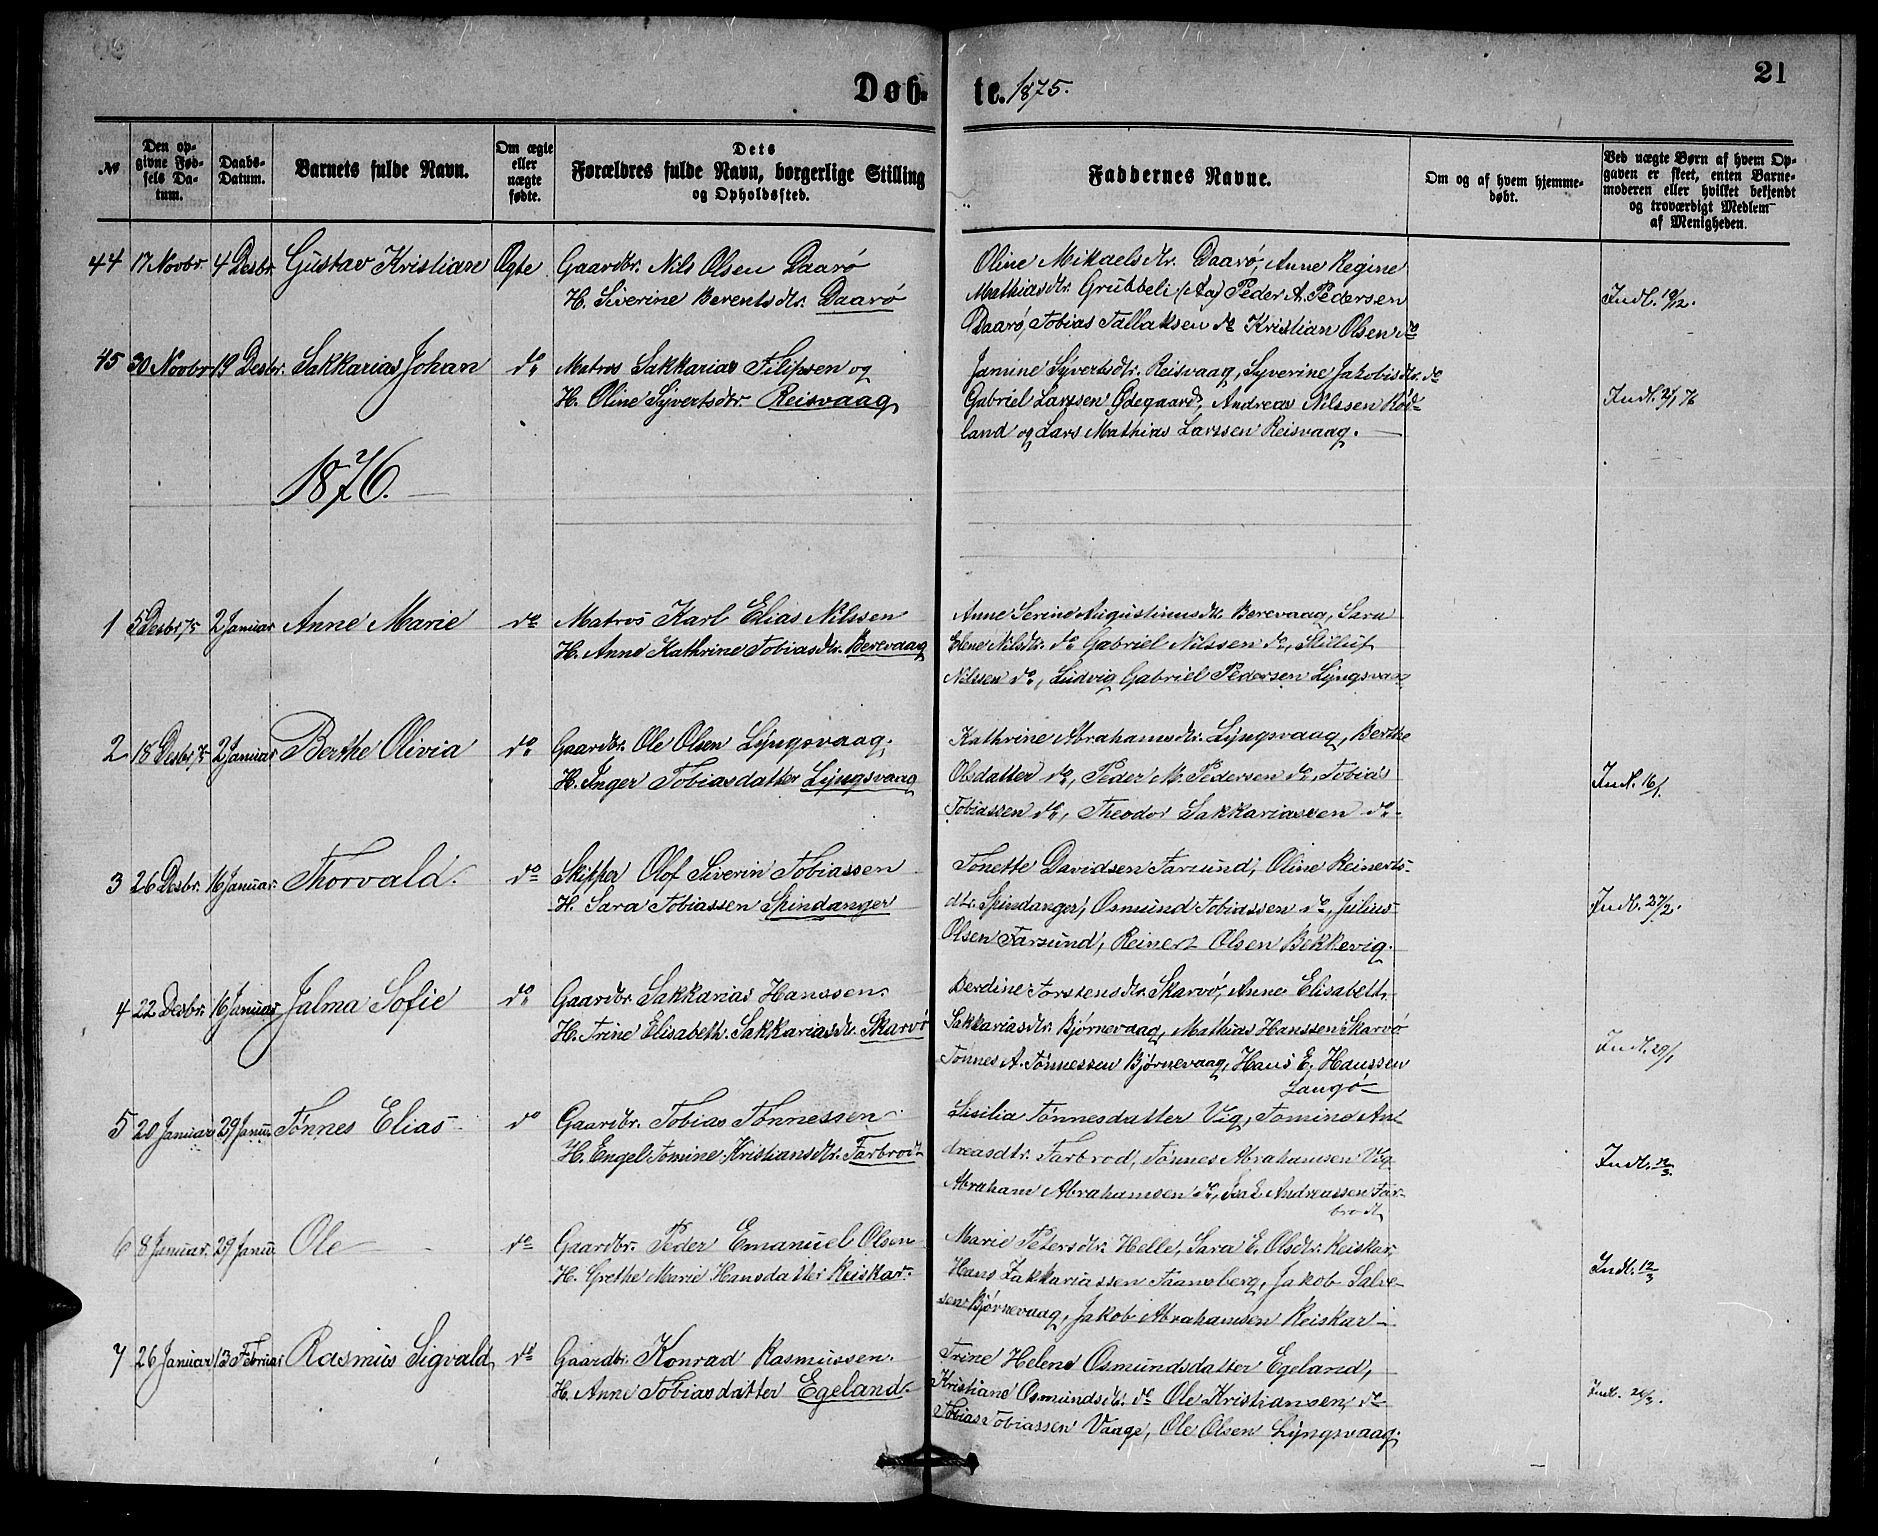 Døb- te. 1875.
21
№
Den op-
givne Fød-
sels Da-
tum.
Daabs-
Datum.
Barnets fulde Navn.
Om ægte
eller
uægte
fødte.
Dets
Forældres fulde Navn, borgerlige Stilling
og Opholdssted.
Faddernes Navne.
Om og af hvem hjemme-
døbt.
Ved uægte Børn af hvem Op-
gaven er skeet, enten Barne-
moderen eller hvilket bekjendt
og troværdigt Medlem
af Menigheden.
44 17 Novbr. 4 Desbr. Gustav Kristian Ægte
Gaardbr. Nils Olsen Daarø
H. Siverine Berentsdtr. Daarø
Oline Mikaelsdtr. Daarø, Anne Regine
Mathiasdtr. Grubbeli (Aa) Peder A. Pedersen
Daarø, Tobias Tallaksen do Kristian Olsen do
Indl. 19/12.
45 30 Novbr 19 Desbr. Sakkarias Johan do
Matros Sakkarias Filipsen og
H. Oline Syvertsdtr. Reisvaag
Jamine Syvertsdtr. Reisvaag, Syverine Jakobsdtr. do
Gabriel Larssen Ødegaard, Andreas Nilssen Rød-
land og Lars Mathias Larssen Reisvaag.
Indl. 2/1 76
1876.
1 5 Desbr 75 2 Januar Anne Marie do
Matros Karl Elias Nilssen
H. Anne Kathrine Tobiasdtr. Berevaag
Anne Serine Augustinusdtr. Berevaag, Sara
Elene Nilsdtr. do Gabriel Nilssen do,
Nilssen do, Ludvig Gabriel Pedersen Lyngsvaag
2 18 Desbr 75 2 Januar Berthe Olivia do
Gaardbr. Ole Olsen Lyngsvaag.
H. Inger Tobiasdatter Lyngsvaag
Kathrine Abrahamsdtr. Lyngsvaag, Berthe
Olsdatter do, Peder M. Pedersen do, Tobias
Tobiassen do, Theodor Sakkariassen do
Indl. 16/1.
3 26 Desbr. 16 Januar. Thorvald. do
Skipper Olof Severin Tobiassen
H. Sara Tobiassen Spindanger
Tonette Davidsen Farsund, Oline Reinerts-
dtr. Spindanger, Osmund Tobiassen do, Julius
Olsen Farsund, Reinert Olsen Bekkevig.
Indl. 27/2.
4 22 Desbr. 16 Januar Jalma Sofie do
Gaardbr Sakkarias Hanssen.
H. Trine Elisabeth Sakkariasdtr. Skarvø
Berdine Torstensdtr. Skarvø, Anne Elisabeth
Sakkariasdtr. Bjørnevaag, Mathias Hanssen Skarvø
Tønnes A. Tønnessen Bjørnevaag, Hans E. Hanssen
Langø
Indl. 29/1
5 20 Januar 29 Januar Tønnes Elias do
Gaardbr. Tobias Tønnessen
H. Engel Tomine Kristiansdtr. Farbrodt
Sisilia Tønnesdatter Vig, Tomine An-
dreasdtr. Farbrod, Tønnes Abrahamsen Vig
Abraham Abrahamsen do, Andreassen Far-
brodt
Indl. 12/3.
6 8 Januar. 29 Janu. Ole do
Gaardbr. Peder Emanuel Olsen
H. Grethe Marie Hansdatter Reiskar.
Marie Petersdtr. Helle, Sara E. Olsdtr. Reiskar,
Hans Zakkariassen Taansberg, Jakob Salve-
sen Bjørnevaag, Jakob Abrahamsen Reiskar
Indl. 12/3
7 26 Januar 13 Februar Rasmus Sigvald do
Gaardbr. Konrad Rasmussen.
H. Anne Tobiasdatter Egeland.
Trine Helene Osmundsdatter Egeland,
Kristiane Osmundsdtr. do Ole Kristiansen do
Tobias Tobiassen Vaage, Ole Olsen Lyngsvaag.
Indl. 26/3.